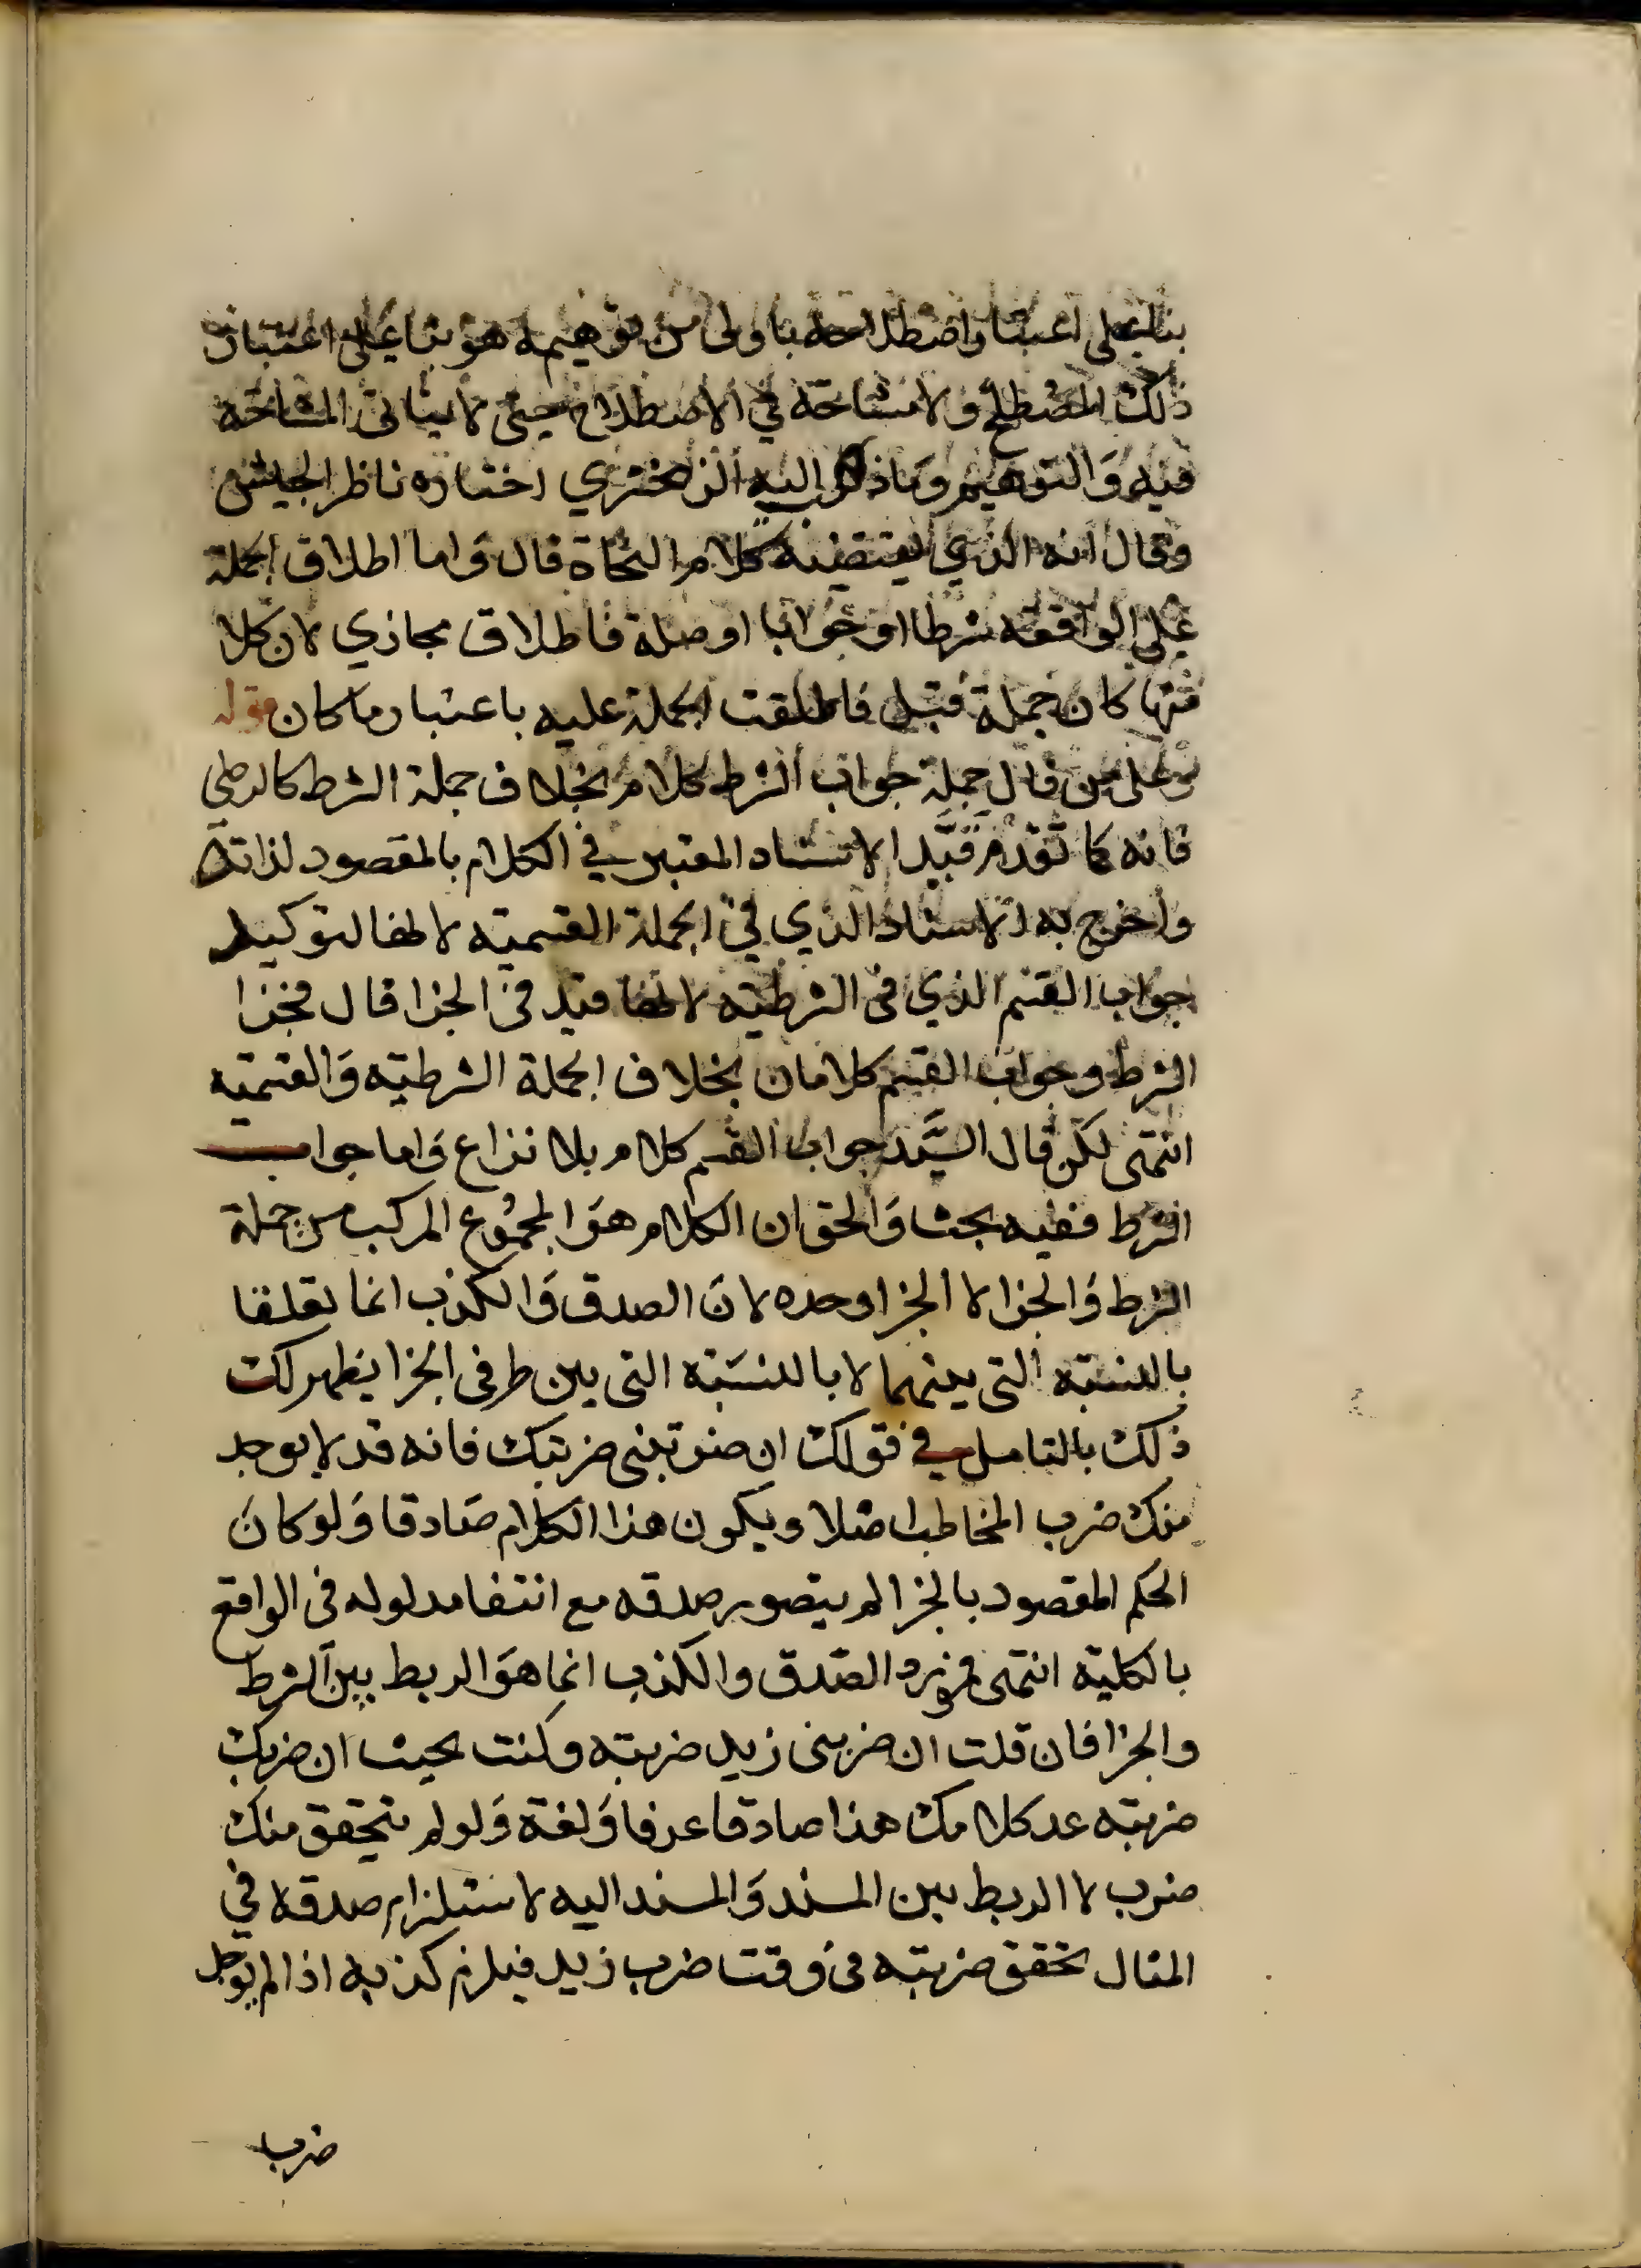 بنا على اعتبار اصطلاحه باولى من توهيمه هو بنا على اعتبار
ذلك المصطلح ولا مشاحة في الاصطلاح حتى لا يتاتى المشاحة
فيه والتوهيم وما ذهب اليه الزمخشري اختاره ناظر الجيش
وقال انه الذي يقتضيه كلام النحاة قال واما اطلاق الجملة
على الواقعة شرطا او جوابا او صلة فاطلاق مجازي لان كلا
منها كان جملة قبل فاطلقت الجملة عليه باعتبار ما كان قوله
وعلى من قال جملة جواب الشرط كلام بخلاف جملة الشرط كالرضي
فانه كما تقدم قَيَّد الاسناد المعتبر في الكلام بالمقصود لذاته
واخرج به الاسناد الذي في الجملة القسمية لانها لتوكيد
جواب القسم الذي في الشرطية لانها قيد في الجزا قال فجزا
الشرط وجواب القسم كلامان بخلاف الجملة الشرطية والقسمية
انتهى لكن قال السَّيد جواب القسم كلام بلا نزاع واما جواب
الشرط ففيه بحث والحق ان الكلام هو المجموع المركب من جملة
الشرط والجزا لا الجزا وحده لان الصدق والكذب انما تعلقا
بالنسبة التي بينهما لا بالنسبة التي بين طرفى الجزا يظهر لك
ذلك بالتامل في قولك ان ضربتنى ضربتك فانه قد لا يوجد
منك ضرب المخاطب اصلا ويكون هذا الكلام صادقا ولو كان
الحكم المقصود بالجزا لم يتصور صدقه مع انتفا مدلوله فى الواقع
بالكلية انتهى فمورد الصدق والكذب انما هو الربط بين الشرط
والجزا فان قلت ان ضربنى زيد ضربته وكنت بحيث ان ضربك
ضربته عد كلامك هذا صادقا عرفا ولغة ولو لم يتحقق منك
ضرب لا الربط بين المسند والمسند اليه لاستلزام صدقه في
المثال تحقق ضربته فى وقت ضرب زيد فيلزم كذبه اذا لم يوجد
ضرب